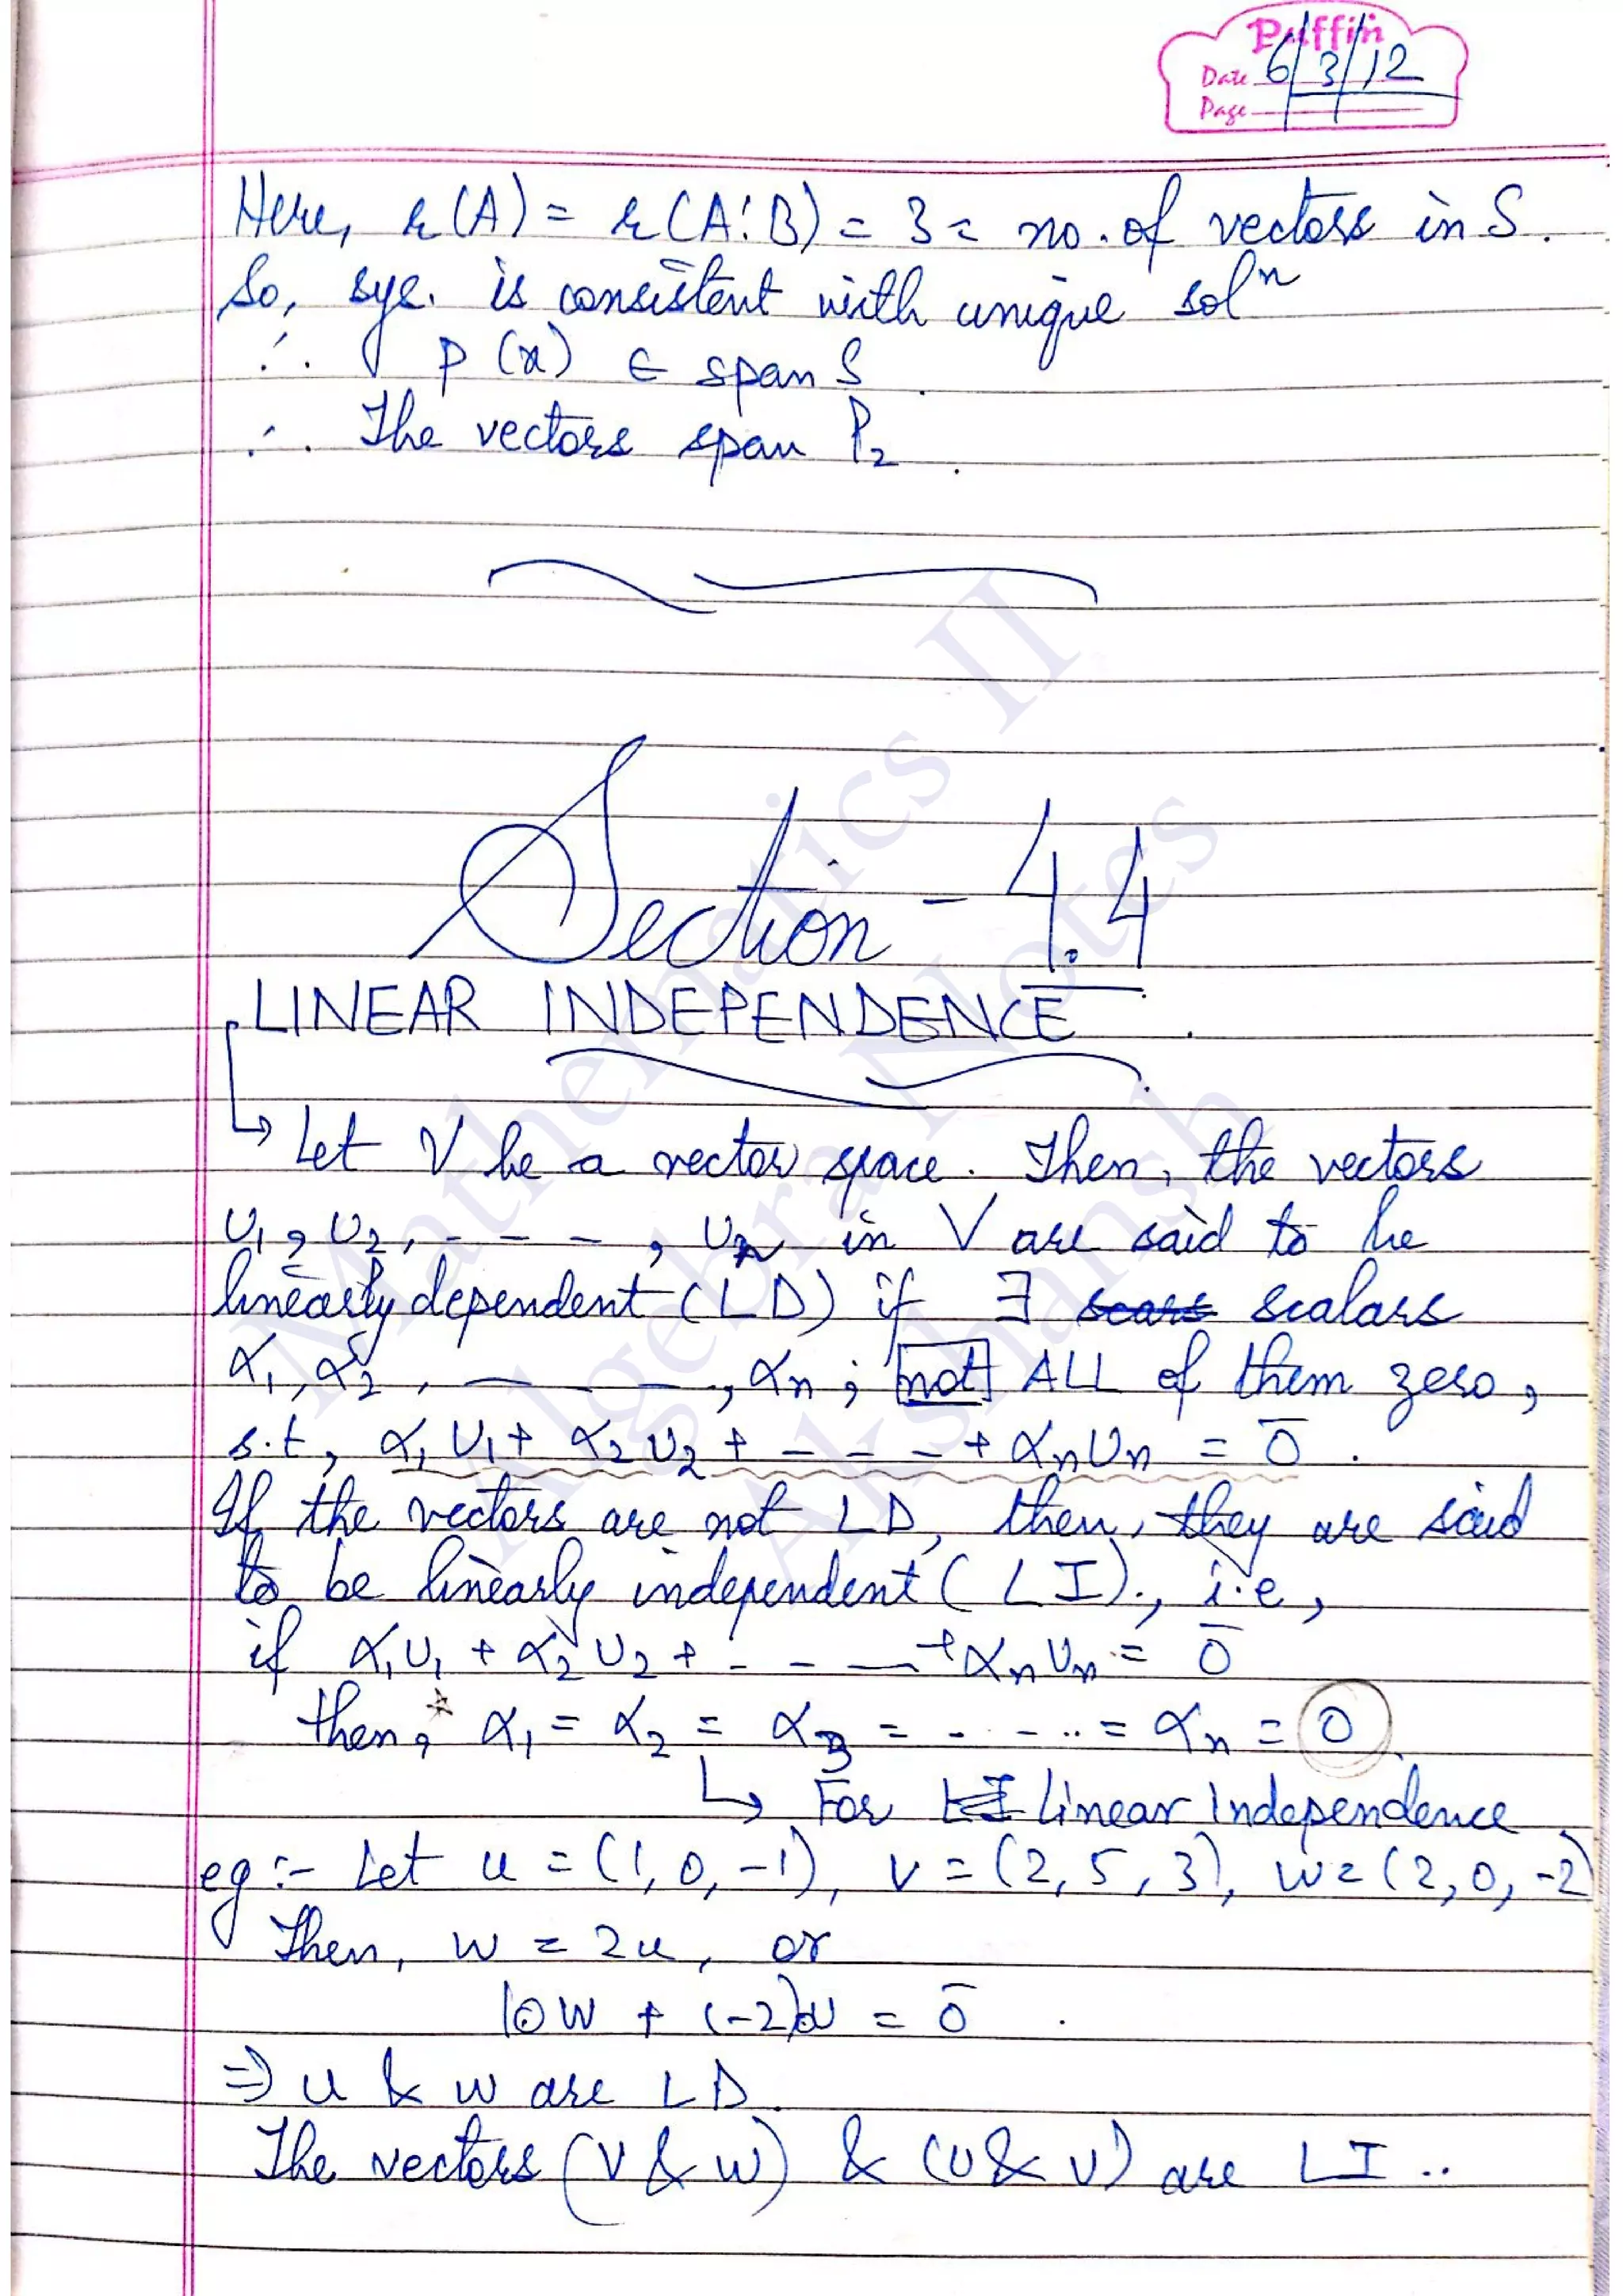 Puffin
Date 6/3/12
Page
Here, r(A) = r(A:B) = 3 = no. of vectors in S.
So, sys. is consistent with unique solⁿ
∴ P(x) ∈ span S.
∴ The vectors span P₂.
Section - 4.4
LINEAR INDEPENDENCE.
↳ Let V be a vector space. Then, the vectors
υ₁, υ₂, - - - -, υₙ in V are said to be
linearly dependent (LD) if ∃ scalars
α₁, α₂, - - -, αₙ; not ALL of them zero,
s.t, α₁υ₁ + α₂υ₂ + - - - + αₙυₙ = 0̄.
If the vectors are not LD, then, they are said
to be linearly independent (LI)., i.e,
if α₁υ₁ + α₂υ₂ + - - - + αₙυₙ = 0̄
then, * α₁ = α₂ = α₃ = - - - .. = αₙ = 0.
↳ For linear Independence
eg:- Let u = (1, 0, -1), v = (2, 5, 3), w = (2, 0, -2)
Then, w = 2u, or
1⊙w + (-2)⊙u = 0̄.
⇒ u & w are LD.
The vectors (v & w) & (u & v) are LI..
Mathematics II
Algebra Notes
Akshansh